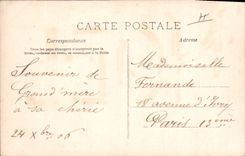 CARTE POSTALE
Correspondance
Adresse
Souvenir de
Grand'mère
à sa chérie
24 Xbre 06
Mademoiselle
Fernande
18 avenue d'Ivry
Paris 13ème